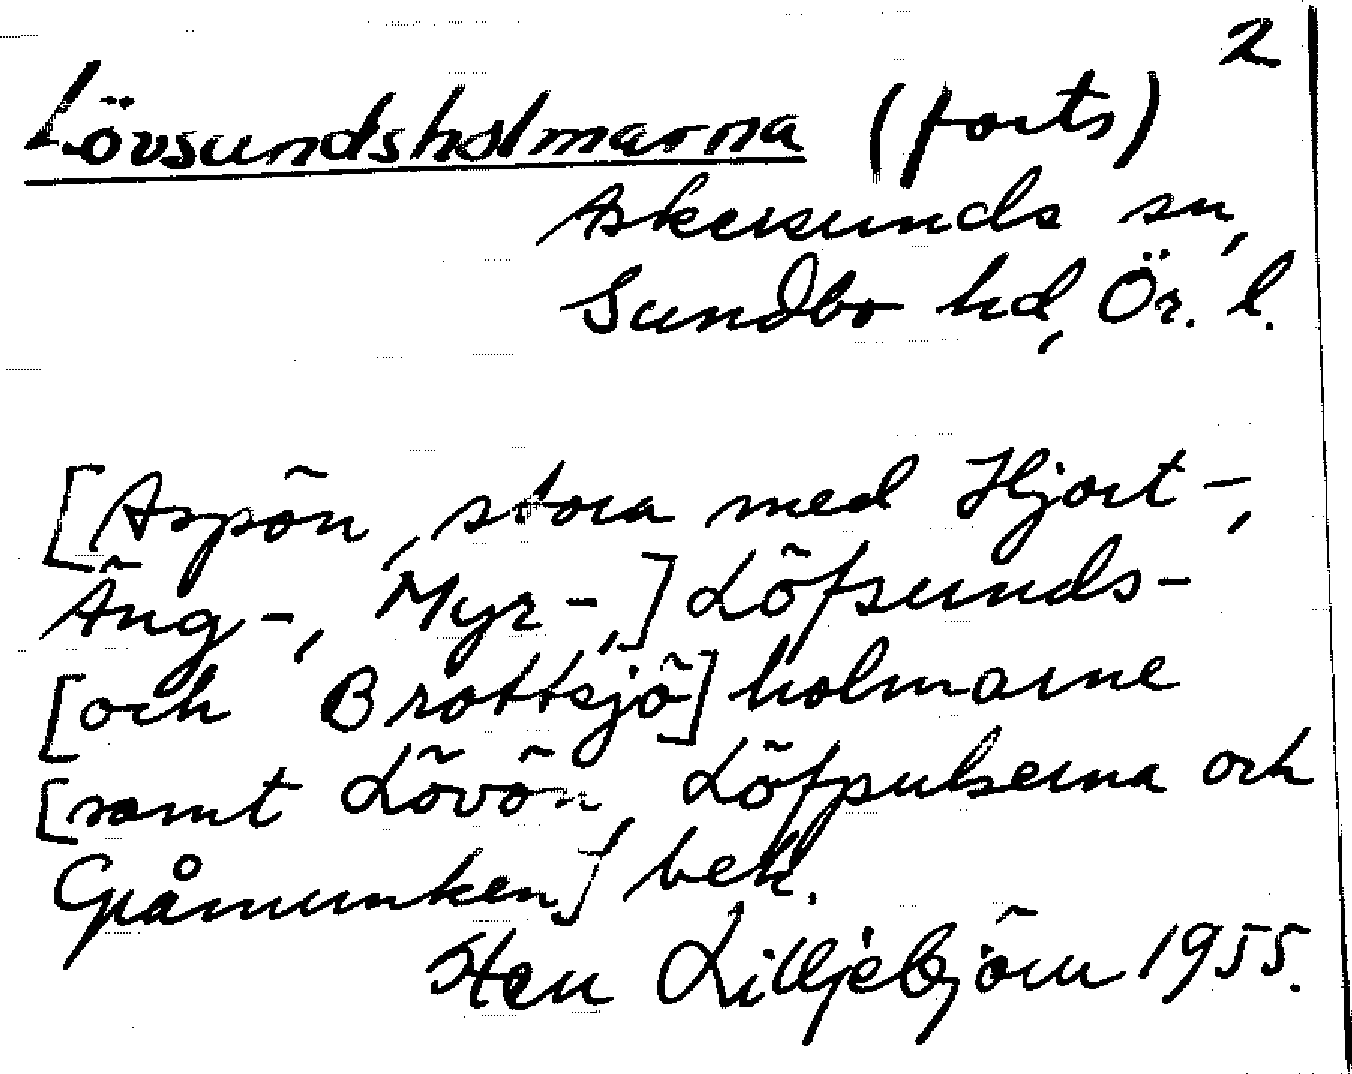 2
Lövsundsholmarna (forts)
Askersunds sn,
Sundbo hd, Ör. l.
[Aspön, stora med Hjort-,
Äng-, Myr-,] Löfsunds-
[och Brottsjö] holmarne
[samt Lövön, Löfpulserna och
Gråmunken] bek.
Sten Lilljebjörn 1955.